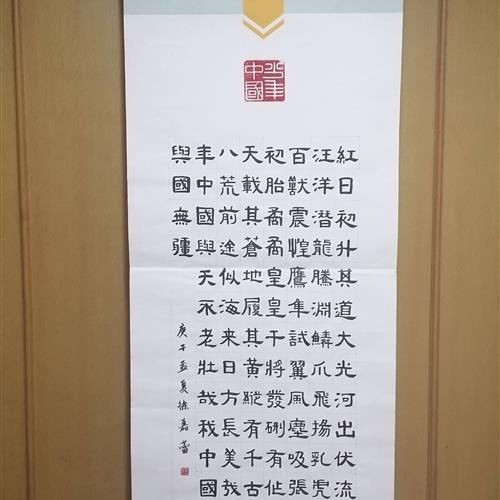 少年中國
紅日初升其道大光河出伏流
汪洋潛龍騰淵鱗爪飛揚乳虎
百獸震惶鷹隼試翼風塵吸張
初胎矞矞皇皇干將發硎有作
天載其蒼地履其黃縱有千古
八荒前途似海来日方長美哉
年中國與天不老壯哉我中國
與國無疆
庚子孟夏徐嘉